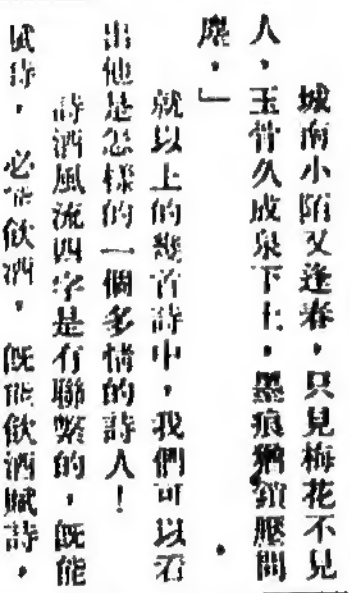 城南小陌又逢春，只見梅花不見
人，玉骨久成泉下土，墨痕猶鎖壁間
塵，」
就以上的幾首詩中，我們可以看
出他是怎樣的一個多情的詩人！
詩酒風流四字是有聯繫的，既能
賦詩，必能飲酒，既能飲酒賦詩，